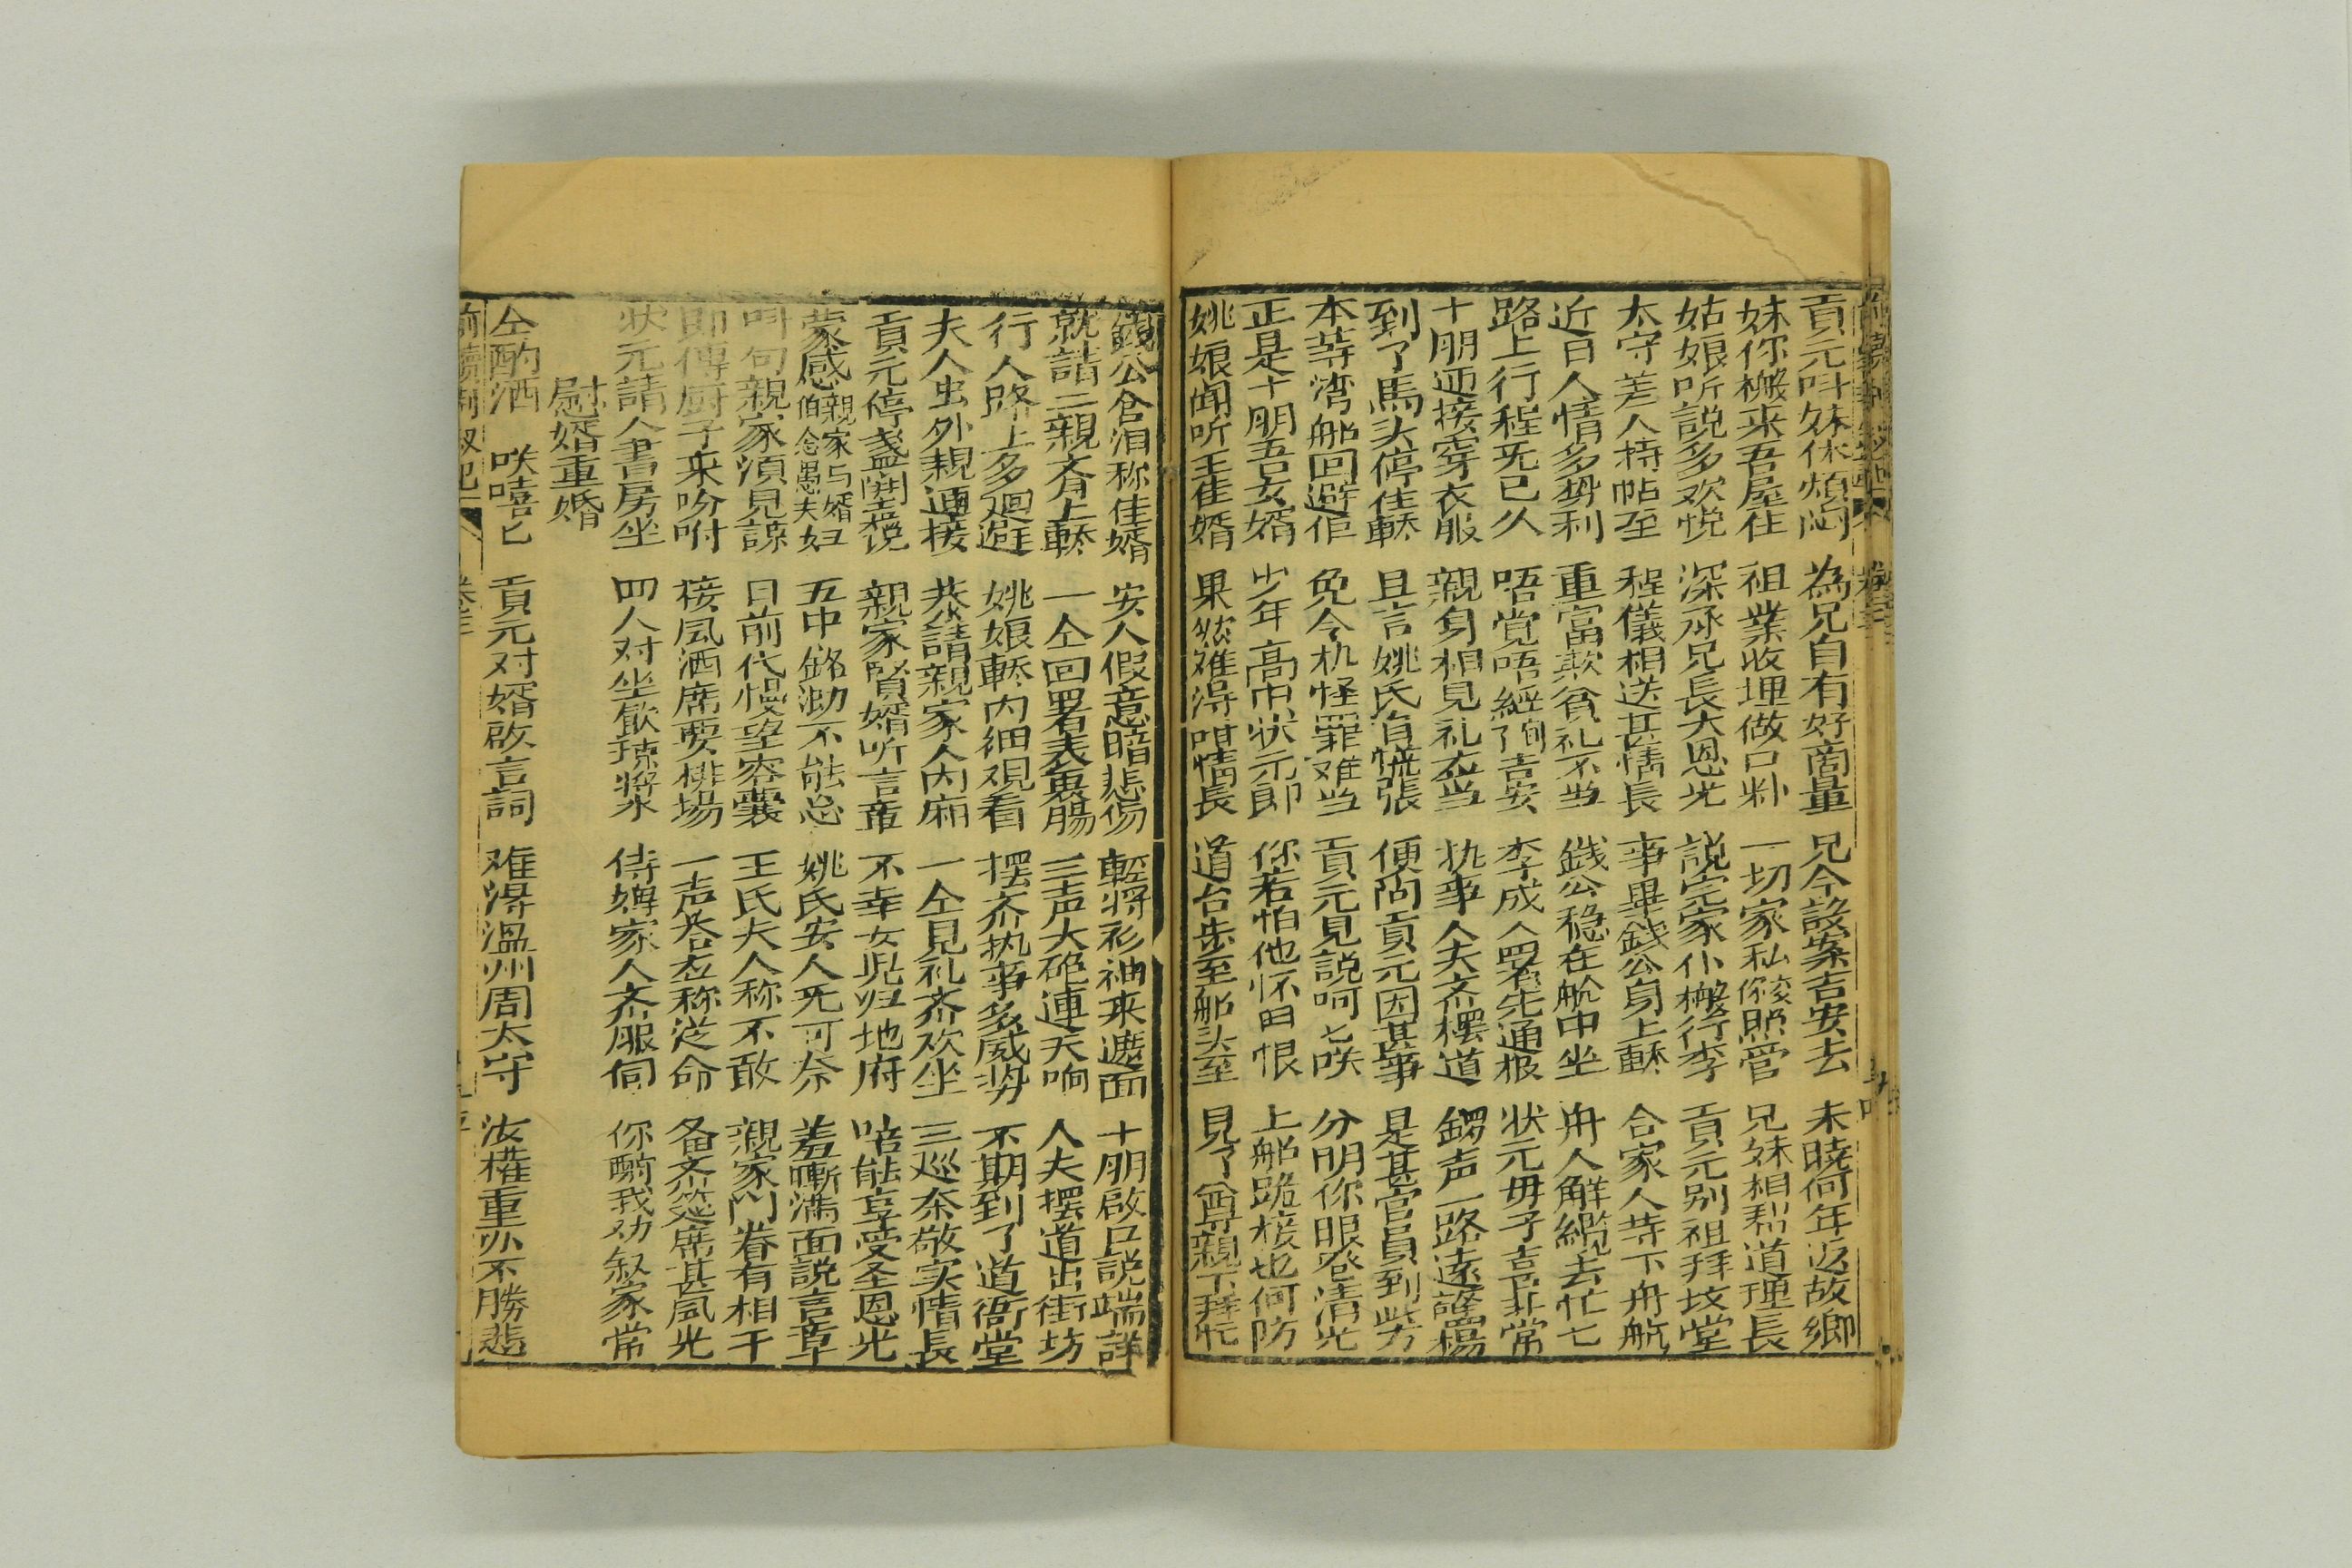 貢元叫妹休煩悶 為兄自有好商量 兄今設案吉安去 未曉何年返故鄉
妹你搬来吾屋住 祖業收埋做口粮 一切家私你照管 兄妹相邦道理長
姑娘听説多欢悅 深承兄長大恩光 説完家仆搬行李 貢元別祖拜坟堂
太守差人持帖至 程儀相送甚情長 事畢錢公身上轎 合家人等下舟航
近日人情多势利 重富欺貧礼不当 錢公穏在舱中坐 舟人觧纜去忙七
路上行程旣已久 唔覚唔經到吉安 李成入署先通报 状元毋子喜非常
十朋迎接穿衣服 親身相見礼应当 执事人夫齐摆道 鑼声一路遠謚揚
到了馬头停住轎 且言姚氏自慌張 便問貢元因甚事 是甚官員到此方
本等湾船回避佢 免令机怪罪难当 貢元見説呵七咲 分明你眼卷清光
正是十朋吾女婿 少年高中状元郎 你若怕他怀旧恨 上船跪接也何防
姚娘聞听王佳婿 果然难得咁情長 道台步至船头至 見了尊親下拜忙
錢公含泪称佳婿 安人假意暗悲傷 輕将衫袖来遮面 十朋啟口説端詳
就請二親齐上轎 一仝回署表衷腸 三声大砲連天响 人夫摆道出街坊
行人路上多廻避 姚娘轎内細观看 摆齐执事多威势 不期到了道衙堂
夫人出外親迎接 恭請親家入内廂 一仝見礼齐欢坐 三巡奈敬实情長
貢元停盞開言説 親家賢婿听言章 不幸女児归地府 唔能享受圣恩光
蒙感親家与婿伯念愚夫妇 五中銘泐不能忘 姚氏安人旡可奈 羞慚满面説言章
叫句親家須見諒 日前代慢望容囊 王氏夫人称不敢 親家門眷有相干
即傳厨子来吩咐 接風洒席要排場 一声答应称从命 备齐筵席甚風光
状元請入書房坐 四人对坐飮瓊漿 侍婢家人齐服伺 你酧我劝叙家常
慰婿重婚
仝酌洒 咲嘻匕 貢元对婿啟言詞 难得温州周太守 汝權重办不勝悲